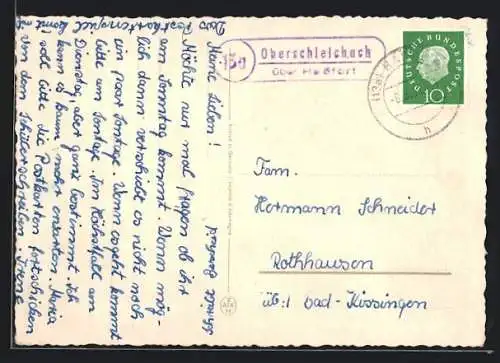 Das Postkartenspiel
kommt
Meine Lieben!
Möchte nur mal fragen ob ihr
am Sonntag kommt. Wenn mög-
lich dann verschiebt es nicht noch
ein paar Sonntage. Wenn es geht kommt
bitte am Sonntag. Im Notfall am
Dienstag, aber ganz bestimmt. Ich
kann es kaum mehr erwarten. Maria
soll bitte die Postkarten fortschicken
von dem Schülerschreiben. Irene
13a
Oberschleichach
über Haßfurt
(13a)
h
DEUTSCHE BUNDESPOST
10
Fam.
Hermann Schneider
Rothhausen
üb: Bad-Kissingen